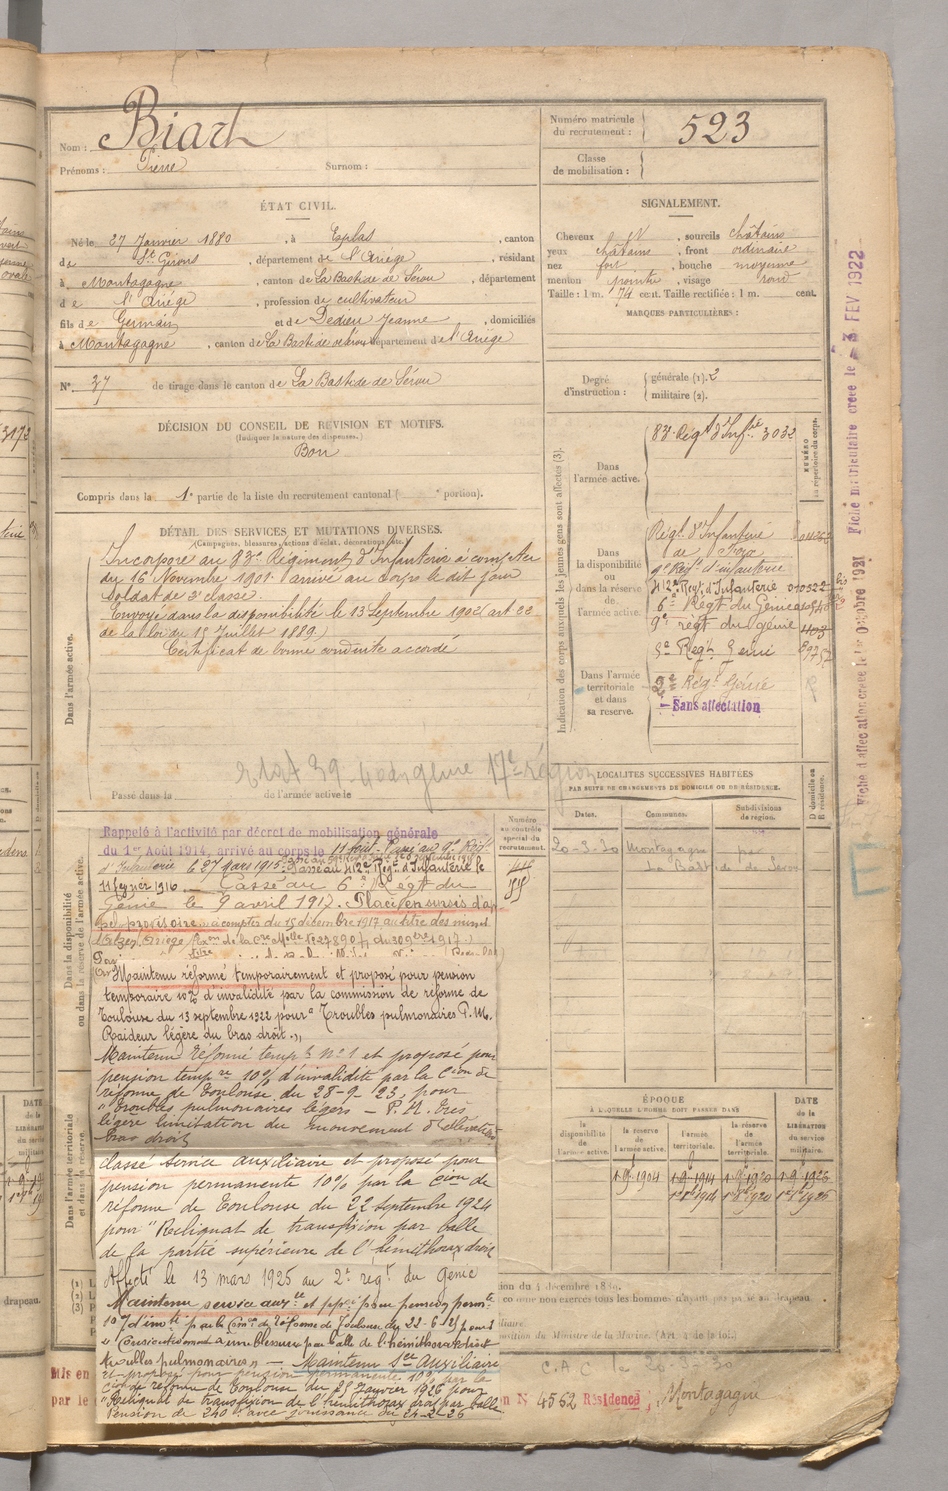 Nom : Biart
Prénoms : Pierre Surnom :
Numéro matricule du recrutement : 523
Classe de mobilisation :
ÉTAT CIVIL.
Né le 27 Janvier 1880, à Esplas, canton
de St Girons, département de l'Ariège, résidant
à Montagagne, canton de La Bastide de Sérou, département
de l'Ariège, profession de cultivateur
fils de Germain et de Dedieu Jeanne, domiciliés
à Montagagne, canton de La Bastide de Sérou département de l'Ariège
N° 37 de tirage dans le canton de La Bastide de Sérou
SIGNALEMENT.
Cheveux N, sourcils châtains
yeux châtains, front ordinaire
nez fort, bouche moyenne
menton pointu, visage rond
Taille : 1 m. 74 cent. Taille rectifiée : 1 m. cent.
MARQUES PARTICULIÈRES :
Degré d'instruction : générale (1). 2
militaire (2).
DÉCISION DU CONSEIL DE RÉVISION ET MOTIFS.
(Indiquer la nature des dispenses.)
Bon
Compris dans la 1e partie de la liste du recrutement cantonal ( portion).
DÉTAIL DES SERVICES ET MUTATIONS DIVERSES.
(Campagnes, blessures, actions d'éclat, décorations, etc.
Dans l'armée active.
Incorporé au 83e Régiment d'Infanterie à compter
du 16 Novembre 1901. arrivé au corps le dit jour
soldat de 2e classe.
Envoyé dans la disponibilité le 13 Septembre 1902 (art 22
de la loi du 15 Juillet 1889.)
Certificat de bonne conduite accordé
17e région
Passé dans la de l'armée active le
Indication des corps auxquels les jeunes gens sont affectés (3).
NUMÉRO au répertoire du corps.
Dans l'armée active.
83e Régt d'Infrie 3032
Dans la disponibilité ou dans la réserve de l'armée active.
Régt d'Infanterie
de Foix
9e Regt d'infanterie
412e Regt d'Infanterie 010522
6e Regt du Génie
9e régt du génie
Dans l'armée territoriale et dans sa réserve.
2e Régt Génie
Sans affectation
Fiche matriculaire créée le - 3 FEV 1922
Fiche d'affectation créée le 1er Octobre 1921
LOCALITÉS SUCCESSIVES HABITÉES
PAR SUITE DE CHANGEMENTS DE DOMICILE OU DE RÉSIDENCE.
Dates. Communes. Subdivisions de région. D domicile ou R résidence.
20-3-30 Montagagne par
La Bastide de Sérou
Numéro au contrôle spécial du recrutement.
Dans la disponibilité ou dans la réserve de l'armée active.
Rappelé à l'activité par décret de mobilisation générale
du 1er Août 1914, arrivé au corps le 11 août. Passé au 9e Régt
d'Infanterie le 27 mars 1915. Passé au 412e Regt d'Infanterie le
11 février 1916. Passé au 6e Regt du
Génie le 9 avril 1917. Placé en sursis d'ap
pel provisoire à compter du 15 décembre 1917 au titre des mines
Maintenu réformé temporairement et proposé pour pension
temporaire 10% d'invalidité par la commission de réforme de
Toulouse du 13 septembre 1922 pour "Troubles pulmonaires P.M.
Raideur légère du bras droit."
Maintenu réformé tempre n°1 et proposé pour
pension tempre 10% d'invalidité par la Cion de
réforme de Toulouse du 28-9-23, pour
"Troubles pulmonaires légers - P.M. très
légère limitation du mouvement d'élévation
bras droit
Classé Service auxiliaire et proposé pour
pension permanente 10% par la Cion de
réforme de Toulouse du 22 septembre 1924
pour "Reliquat de transfixion par balle
de la partie supérieure de l'hémithorax droit
Affecté le 13 mars 1925 au 2e régt du Génie
Maintenu service auxre et propé pour pension permte
10% d'invté par la Cion de réforme de Toulouse du 22-6-25 pour
à une blessure par balle de l'hémithorax droit
troubles pulmonaires" - Maintenu Sce Auxiliaire
et proposé pour pension permanente 10% par la
Cion de réforme de Toulouse du 25 Janvier 1926 pour
"Reliquat de transfixion de l'hémithorax droit par balle
Pension de 240 f avec jouissance du 24-2-25
Dans l'armée territoriale et dans sa réserve.
ÉPOQUE
À LAQUELLE L'HOMME DOIT PASSER DANS
la disponibilité de l'armée active. la réserve de l'armée active. l'armée territoriale. la réserve de l'armée territoriale.
DATE de la LIBÉRATION du service militaire.
1-9-1904 1-9-1914 1-9-1920 1-9-1926
C.A.C. le 20-3-30
N° 4562 Résidence : Montagagne